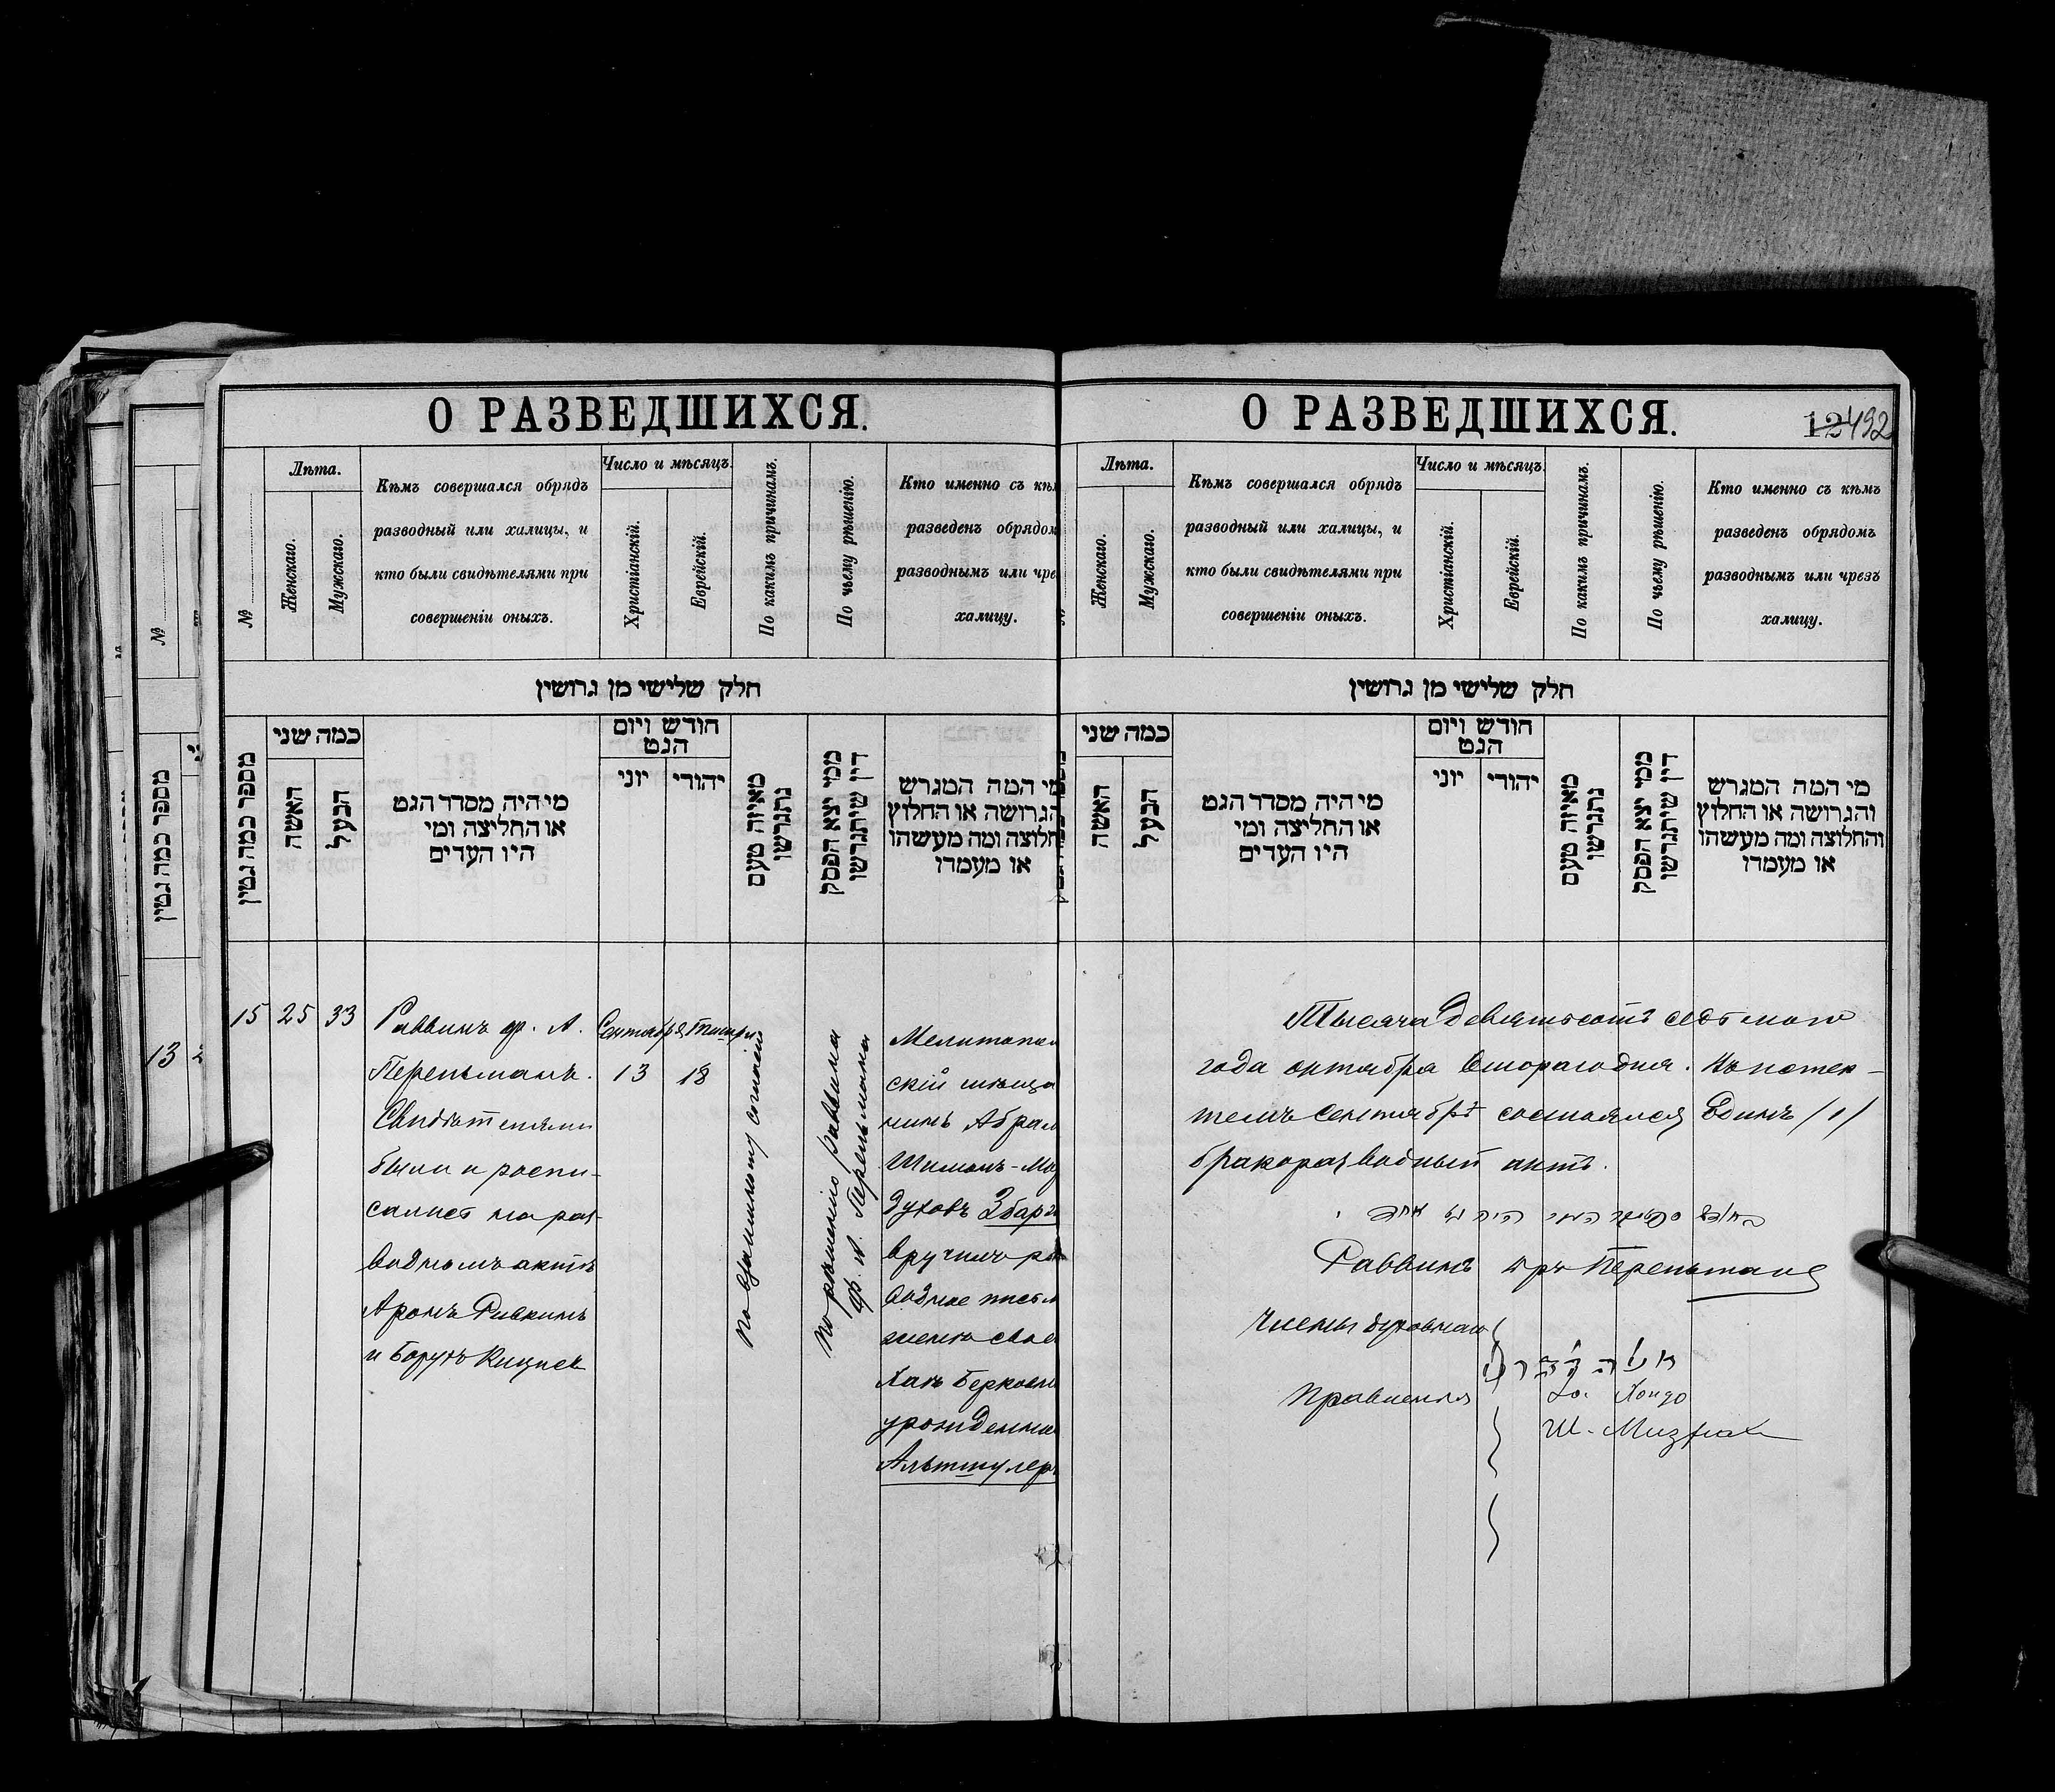 О РАЗВЕДШИХСЯ.
№
Лѣта.
Женскаго.
Мужскаго.
Кѣмъ совершался обрядъ
разводный или халицы, и
кто были свидѣтелями при
совершеніи оныхъ.
Число и мѣсяцъ.
Христіанскій.
Еврейскій.
По какимъ причинамъ.
По чьему рѣшенію.
Кто именно съ кѣм
разведенъ обрядом
разводнымъ или чре
халицу.
חלק שלישי מן גרושין
מספר כמה גטין
כמה שני
האשה
הבעל
מי היה מסדר הגט
או החליצה ומי
היו העדים
חודש ויום
הגט
יוני
יהודי
מאיזה טעם
נתגרשו
ממי יצא הפסק
דין שיתגרשו
מי המה המגרש
הגרושה או החלוץ
חלוצה ומה מעשהו
או מעמדו
15
25
33
Раввинъ др. А.
Перельманъ.
Свидѣтелями
были и роспи-
сались на раз-
водномъ актѣ
Аронъ Ривкинъ
и Борухъ
Сентября
13
Тишри
18
По взаимному согласію
По рѣшенію раввина
др. А. Перельмана
Мелитополь
скій мѣща
нинъ Абрам
Шимонъ-Мор
духовъ Збарж
вручилъ раз
водное письм
женѣ свое
Ханѣ Берковн
урожденна
Альтшулеръ
№
מספר כמה גטין
13
2
О РАЗВЕДШИХСЯ.
12 492
№
Лѣта.
Женскаго.
Мужскаго.
Кѣмъ совершался обрядъ
разводный или халицы, и
кто были свидѣтелями при
совершеніи оныхъ.
Число и мѣсяцъ.
Христіанскій.
Еврейскій.
По какимъ причинамъ.
По чьему рѣшенію.
Кто именно съ кѣмъ
разведенъ обрядомъ
разводнымъ или чрезъ
халицу.
חלק שלישי מן גרושין
כמה שני
האשה
הבעל
מי היה מסדר הגט
או החליצה ומי
היו העדים
חודש ויום
הגט
יוני
יהודי
מאיזה טעם
נתגרשו
ממי יצא הפסק
דין שיתגרשו
מי המה המגרש
והגרושה או החלוץ
והחלוצה ומה מעשהו
או מעמדו
Тысяча девятьсотъ седьмого
года октября второго дня. Въ истек-
темъ сентябрѣ состоялся одинъ /1/
бракоразводный актъ.
Раввинъ дръ Перельманъ
Члены духовнаго
Правленія
Ш.